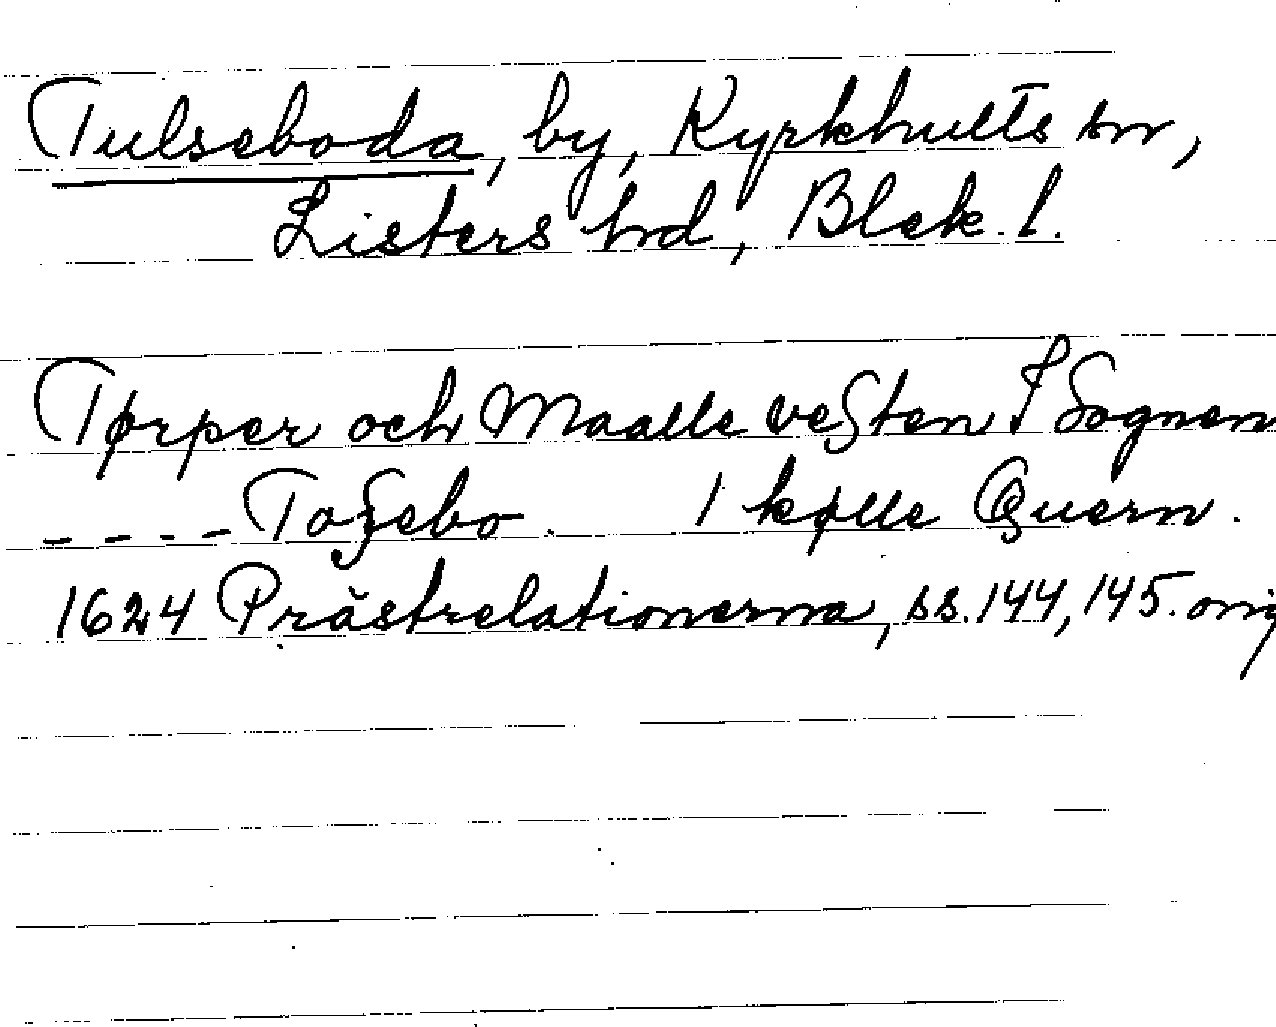 Tulseboda, by, Kyrkhults sn,
Listers hd, Blek. l.
Tørper och Maalle veſten I Sognen
---- Toſsebo. 1 kølle Quern.
1624 Prästrelationerna, ss. 144, 145. orig